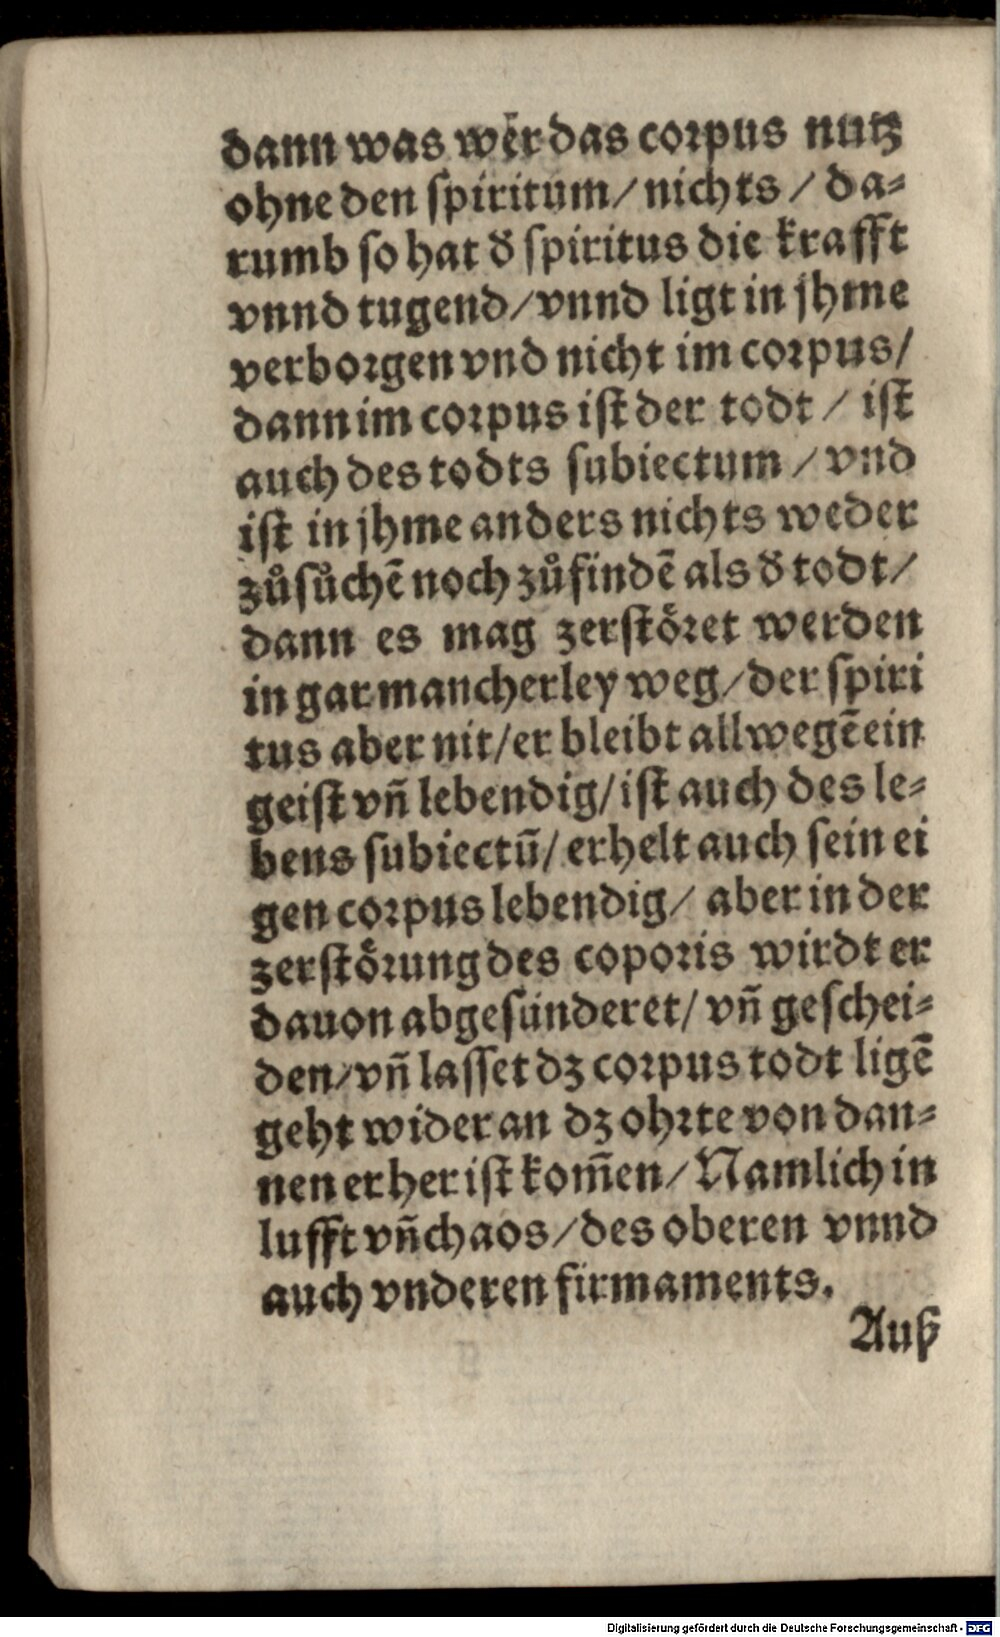 dann was wër das corpus nutz
ohne den spiritum/ nichts / da⸗
rumb so hat d̕ spiritus die krafft
vnnd tugend/vnnd ligt in jhme
verborgen vnd nicht im corpus/
dann im corpus ist der todt / ist
auch des todts subiectum / vnd
ist in jhme anders nichts weder
zůsůchē noch zůfindē als d̕ todt/
dann es mag zerstöret werden
in gar mancherley weg/der spiri
tus aber nit/er bleibt allwegē ein
geist vñ lebendig/ist auch des le⸗
bens subiectū/ erhelt auch sein ei
gen corpus lebendig/ aber in der
zerstörung des coporis wirdt er
dauon abgesünderet/ vñ geschei⸗
den/vñ lasset dz corpus todt ligē
geht wider an dz ohrte von dan⸗
nen er her ist kom̄en/Namlich in
lufft vñ chaos/des oberen vnnd
auch vnderen firmaments.
Auß
Digitalisierung gefördert durch die Deutsche Forschungsgemeinschaft - DFG